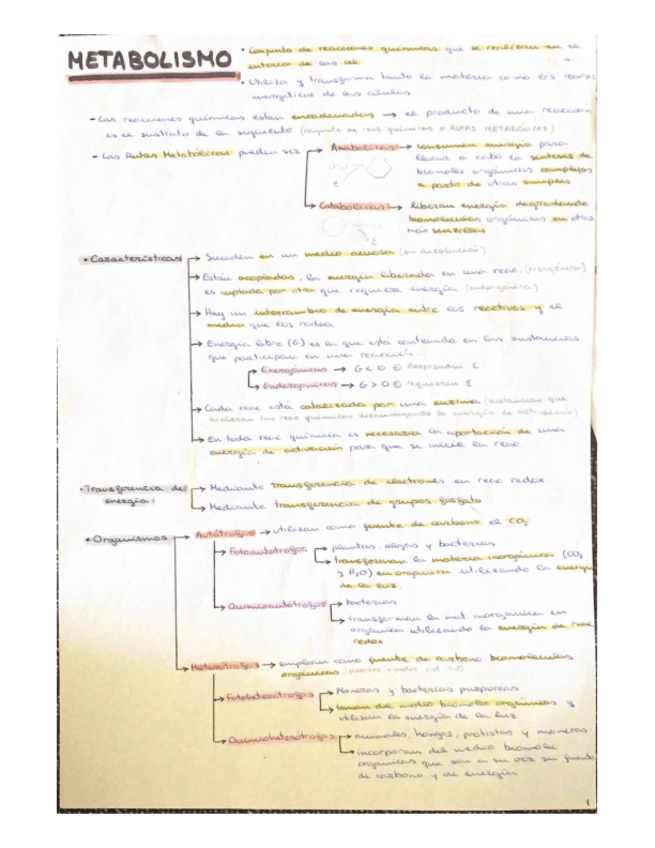 METABOLISMO
• Conjunto de reacciones químicas que se realizan en el
interior de las cél.
• Utiliza y transforma tanto la materia como los recursos
energéticos de las células
- Las reacciones químicas están encadenadas → el producto de una reacción
es el sustrato de la siguiente (conjunto de reac químicas = RUTAS METABÓLICAS)
- Las Rutas Metabólicas pueden ser
Anabólicas → consumen energía para
llevar a cabo la síntesis de
biomolec orgánicas complejas
a partir de otras simples
E
Catabólicas → liberan energía degradando
biomoléculas orgánicas en otras
más sencillas
E
• Características
→ Suceden en un medio acuoso (en disolución)
→ Están acopladas, la energía liberada en una reac. (exergónica)
es captada por otra que requiere energía (endergónica)
→ Hay un intercambio de energía entre los reactivos y el
medio que los rodea
→ Energía libre (G) es la que está contenida en las sustancias
que participan en una reacción.
→ Exergónicas → G < 0 desprenden E
→ Endergónicas → G > 0 requieren E
→ Cada reac está catalizada por una enzima (sustancias que
aceleran las reac químicas disminuyendo la energía de activación)
→ En toda reac química es necesaria la aportación de una
energía de activación para que se inicie la reac.
• Transferencia de
energía:
→ Mediante transferencia de electrones en reac redox
→ Mediante transferencia de grupos fosfato
• Organismos
→ Autótrofos → utilizan como fuente de carbono el CO₂
→ Fotoautótrofos
→ plantas, algas y bacterias
→ transforman la materia inorgánica (CO₂
y H₂O) en orgánica utilizando la energía
de la luz.
→ Quimioautótrofos
→ bacterias
→ transforman la mat. inorgánica en
orgánica utilizando la energía de reac
redox
→ Heterótrofos → emplean como fuente de carbono biomoléculas
orgánicas
→ Fotoheterótrofos
→ Moneras y bacterias purpúreas
→ toman del medio biomolec orgánicas y
utilizan la energía de la luz
→ Quimioheterótrofos
→ animales, hongos, protistas y moneras
→ incorporan del medio biomolec
orgánicas que son a su vez su fuente
de carbono y de energía
1